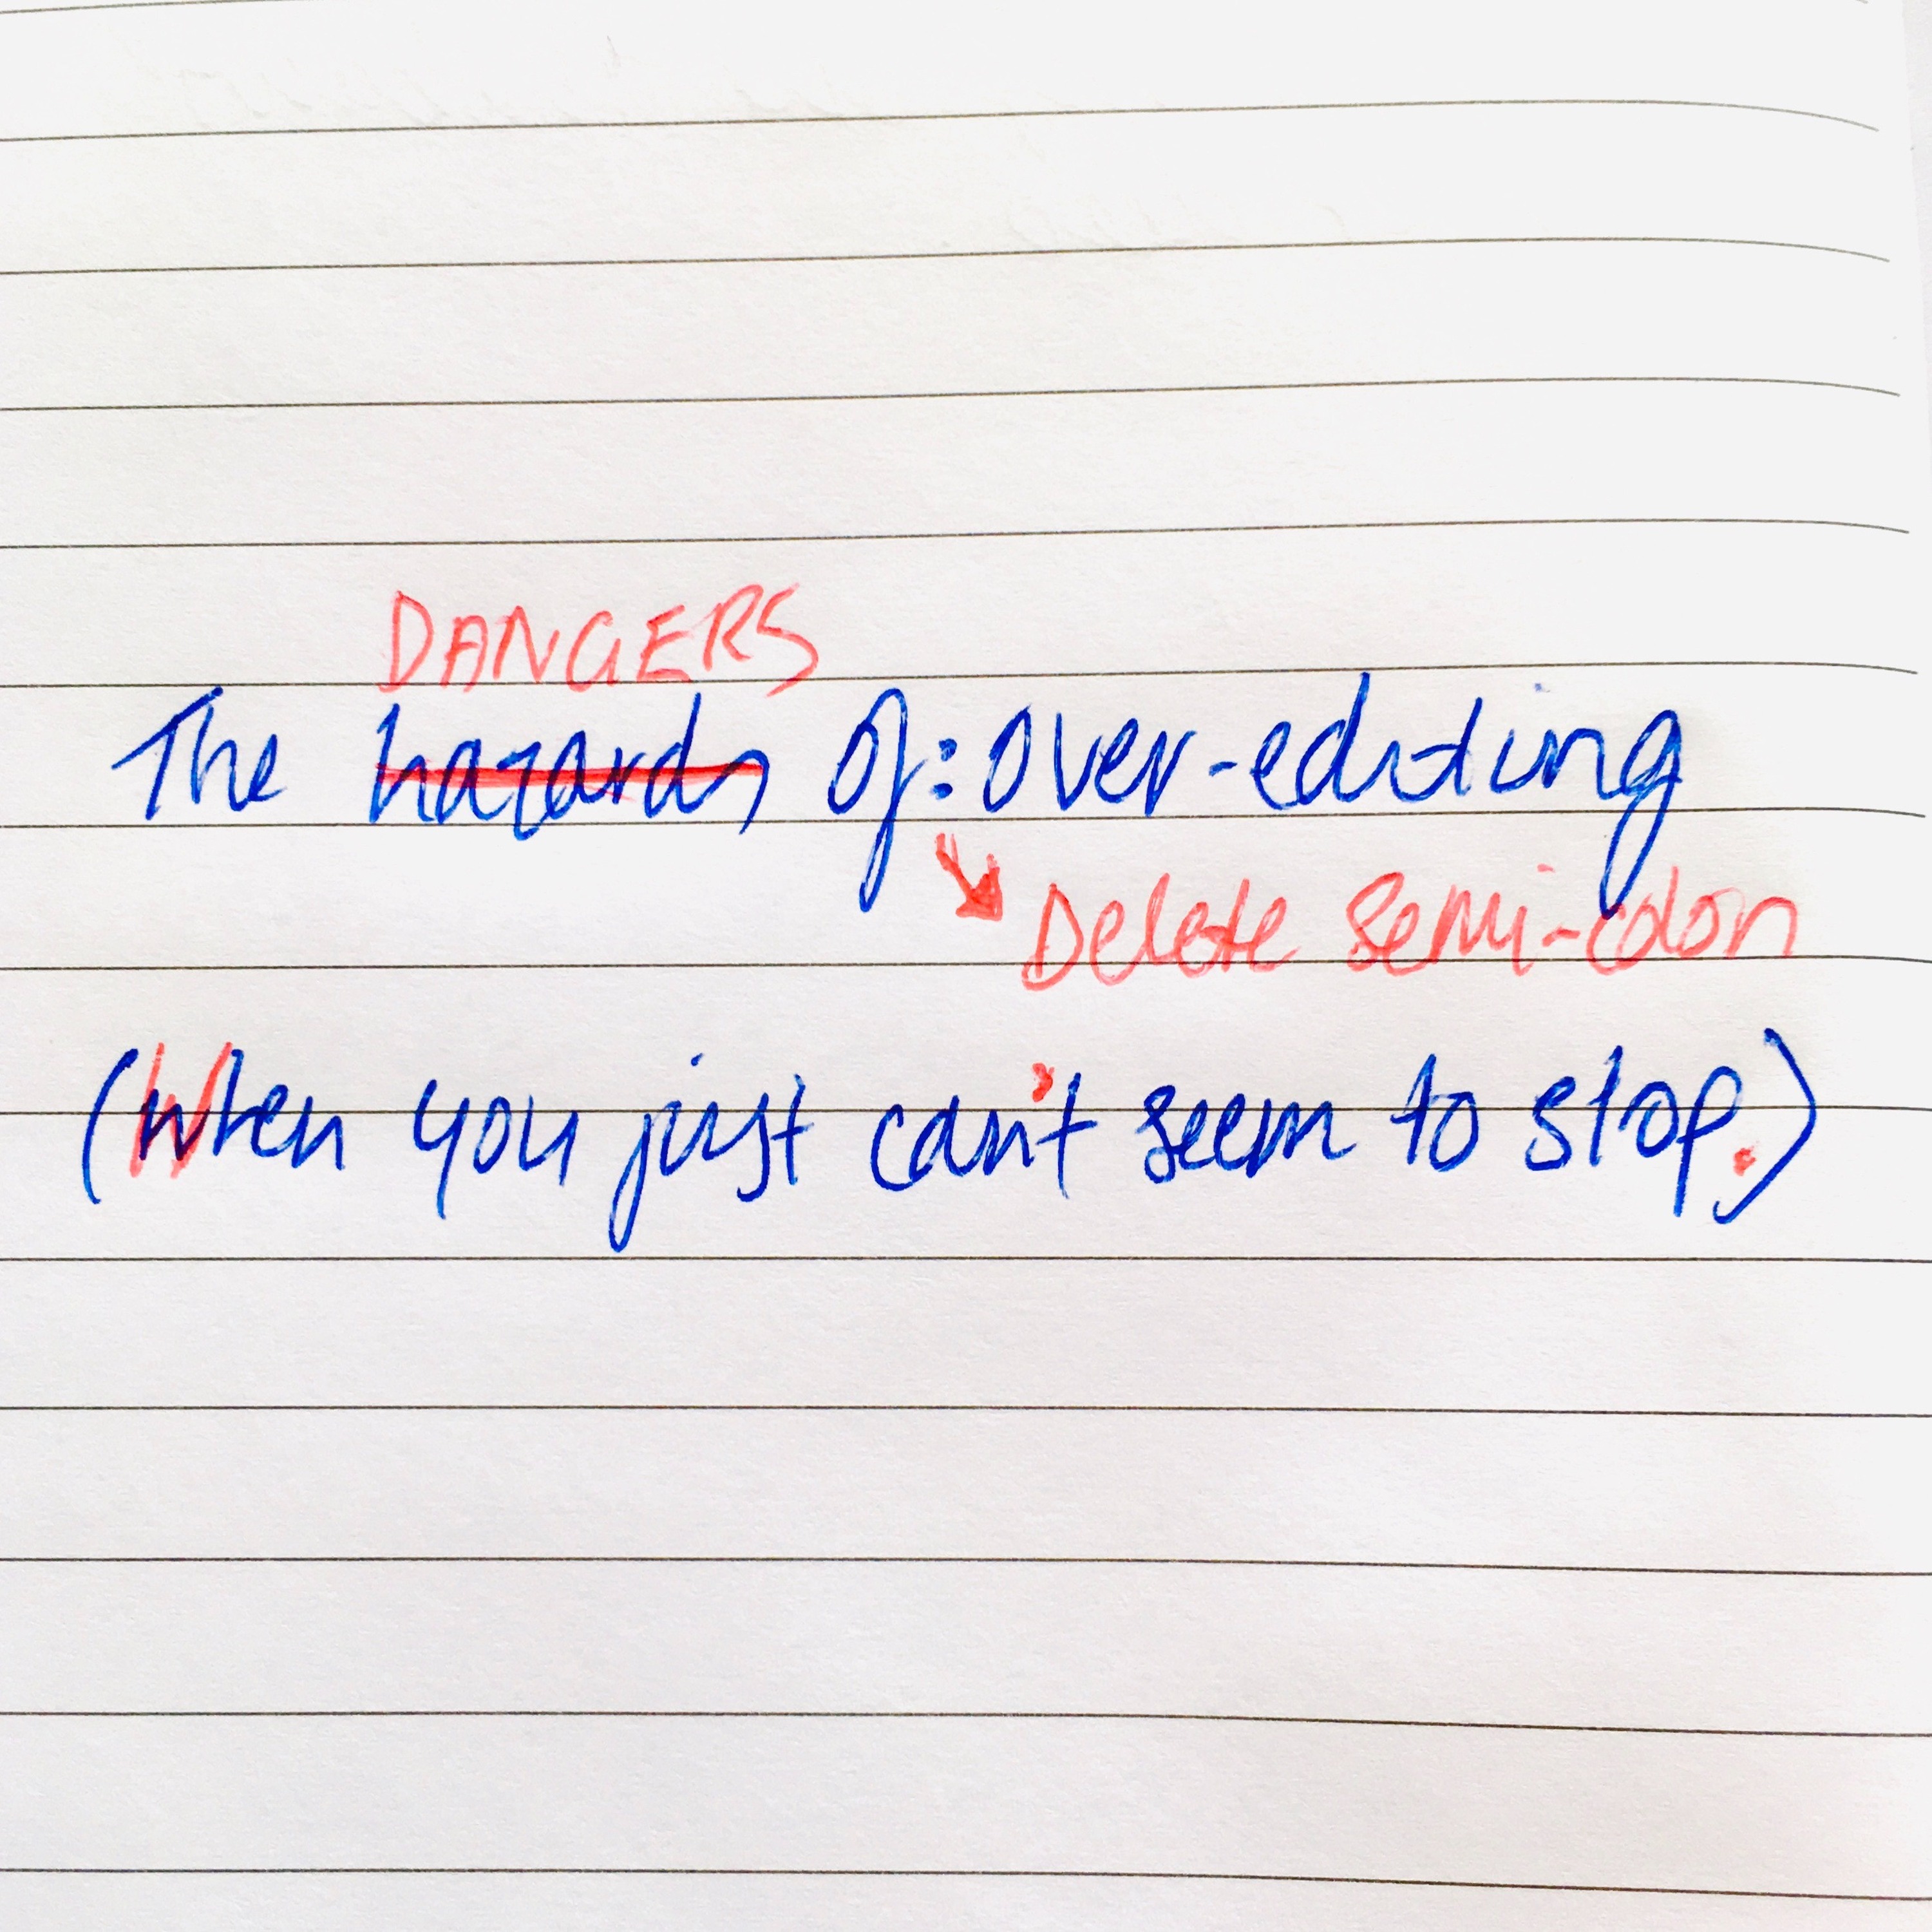 DANGERS
The hazards of: over-editing
Delete semi-colon
(When you just can't seem to stop.)